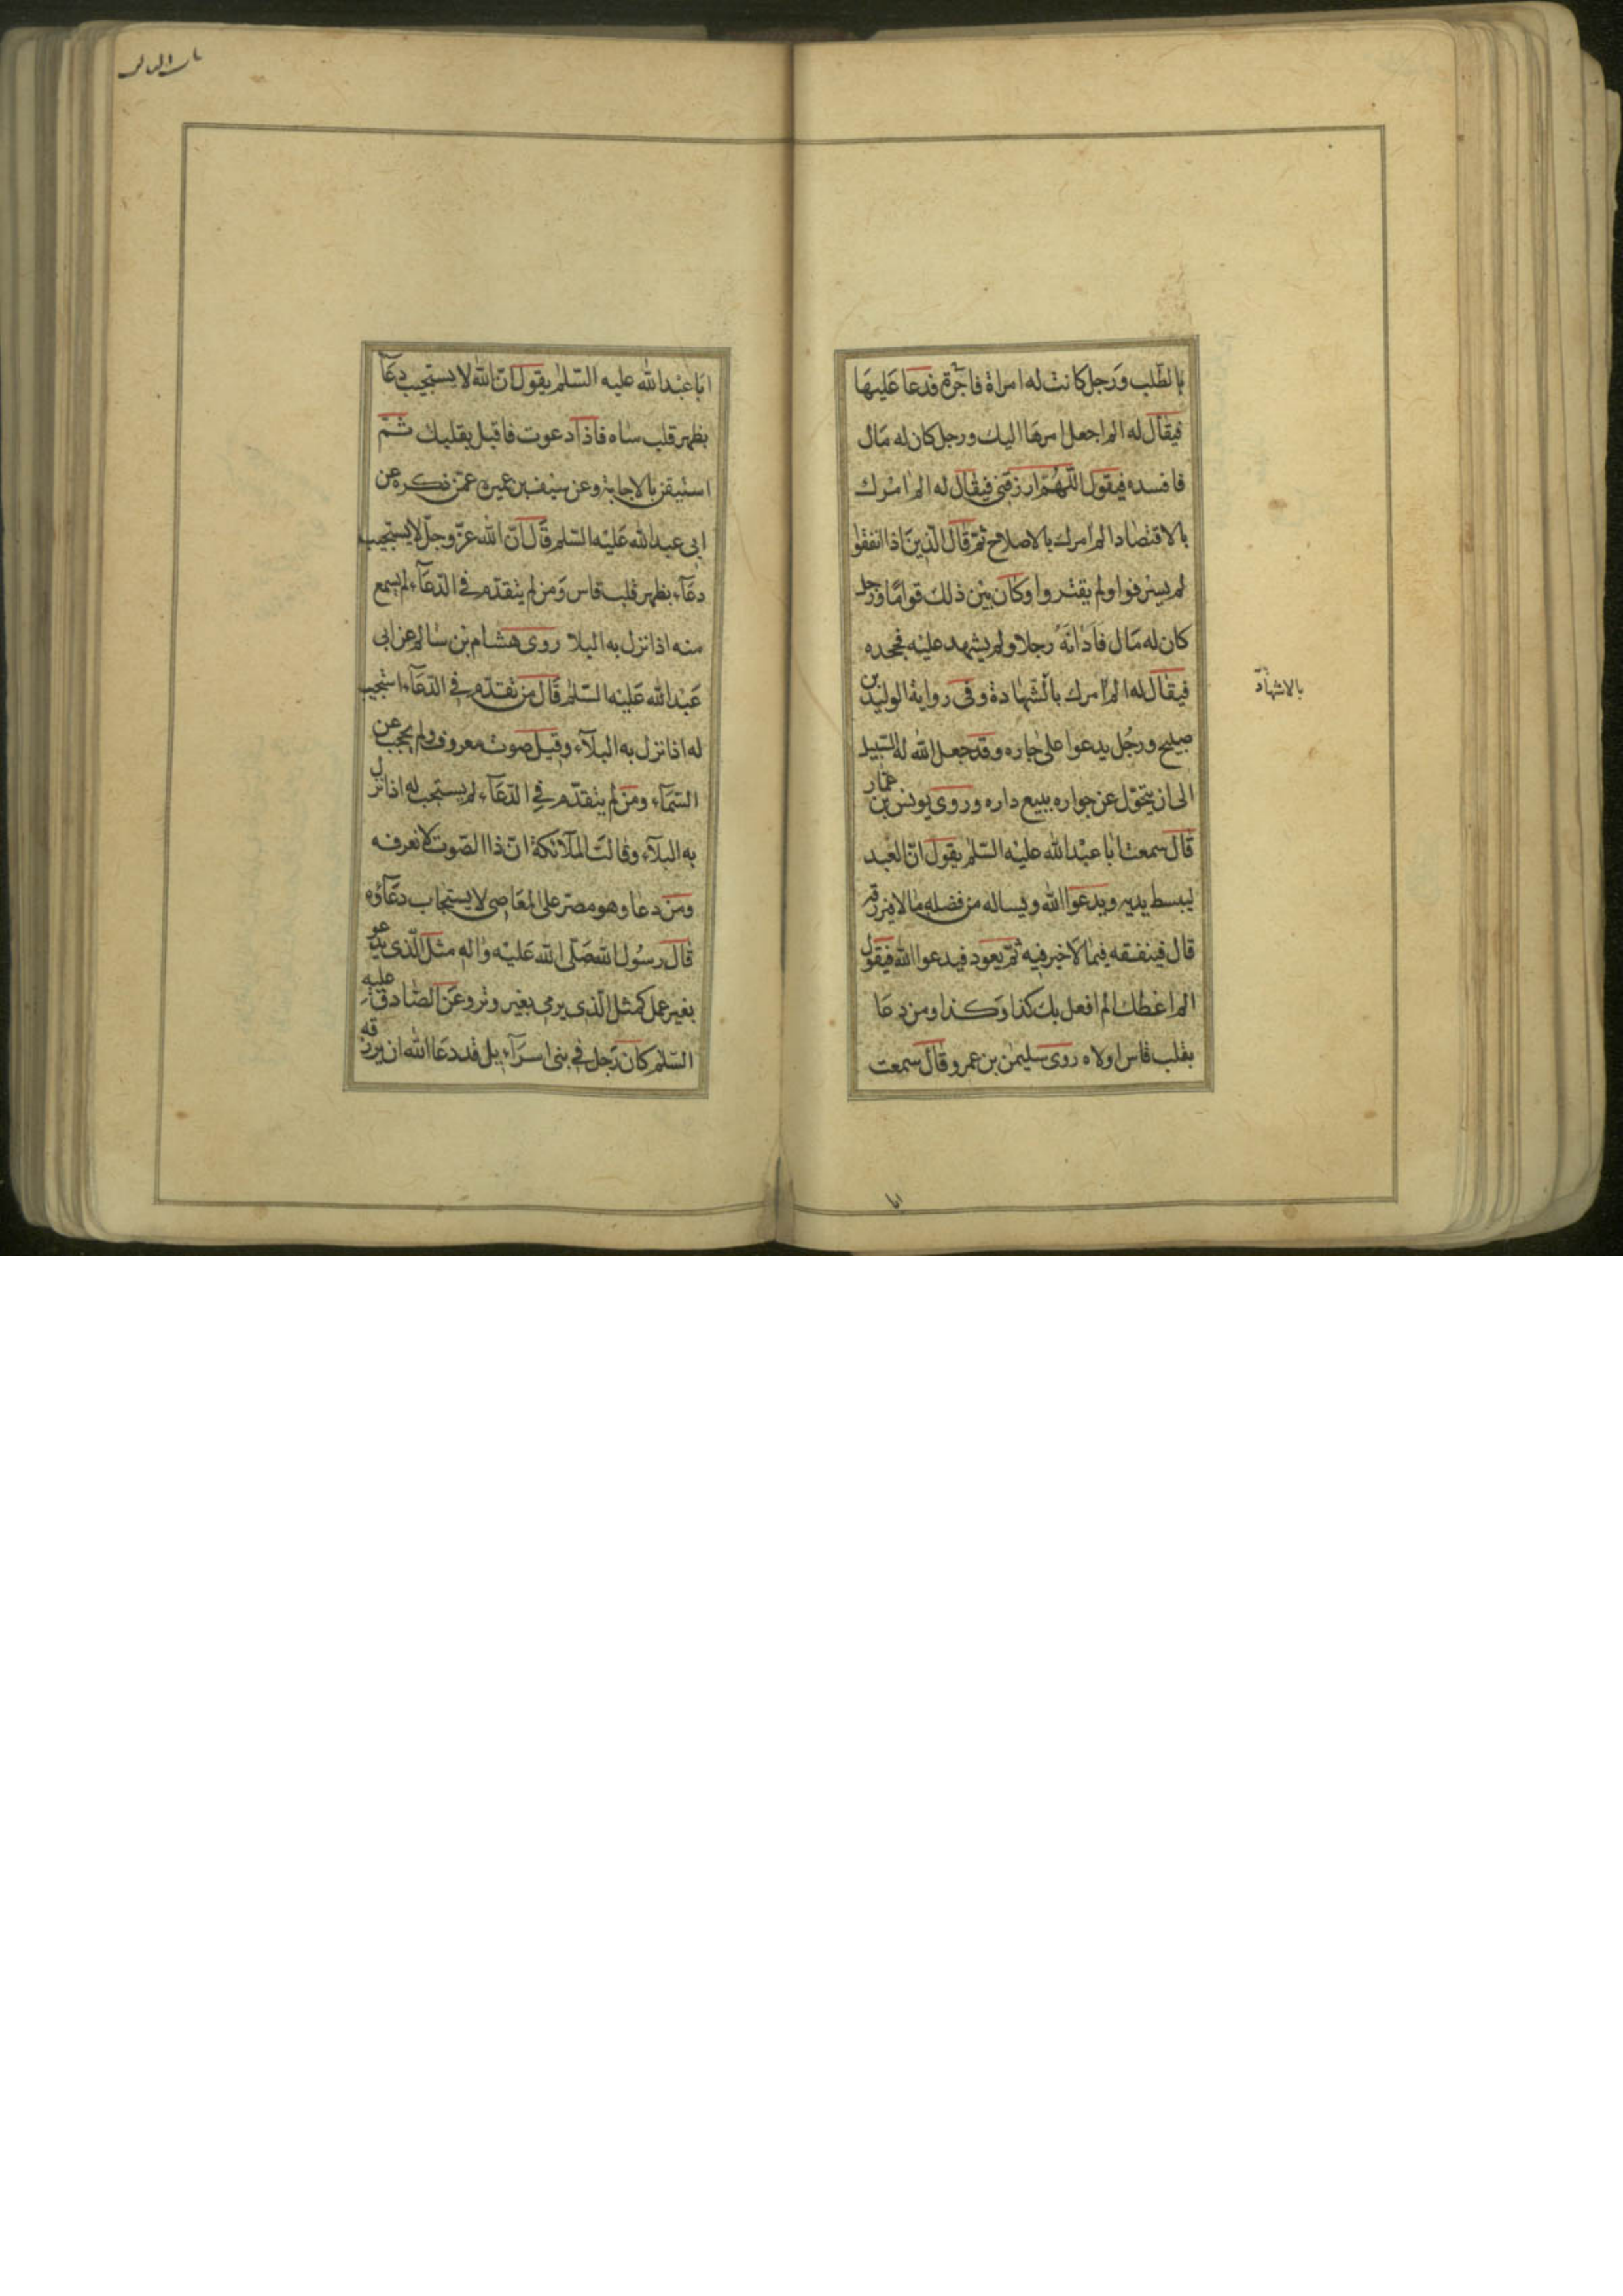 بالطّلب ورجل كانت له امراة فاجرة فدعا عليها
فيقال له الم اجعل امرها اليك ورجل كان له مال
فافسده فيقول اللّهمّ ارزقنى فيقال له الم امرك
بالاقتصاد الم امرك بالاصلاح ثمّ قال الّذين اذا انفقوا
لم يسرفوا ولم يقتروا وكان بين ذلك قواما ورجل
كان له مال فادانه رجلا ولم يشهد عليه فجحده
فيقال له الم امرك بالشّهادة وفى رواية الوليد بن
بالاشهاد
صبيح ورجل يدعوا على جاره وقد جعل الله له السّبيل
الى ان يتحوّل عن جواره ببيع داره وروى يونس بن عمّار
قال سمعت ابا عبد الله عليه السّلم يقول انّ العبد
ليبسط يديه ويدعوا الله ويساله من فضله مالا فيرزقه
قال فينفقه فيما لا خير فيه ثمّ يعود فيدعوا الله فيقول
الم اعطك الم افعل بك كذا وكذا ومن دعا
بقلب قاس اولاه روى سليمن بن عمرو قال سمعت
ابا
ابا عبد الله عليه السّلم يقول انّ الله لا يستجيب دعآ
بظهر قلب ساه فاذا دعوت فاقبل بقلبك ثمّ
استيقن بالاجابة وعن سيف بن عميرة عمّن ذكره عن
ابى عبد الله عليه السّلم قال انّ الله عزّ وجلّ لا يستجيب
دعآء بظهر قلب قاس ومن لم يتقدّم فى الدّعآء لم يسمع
منه اذا نزل به البلا روى هشام بن سالم عن ابى
عبد الله عليه السّلم قال من تقدّم فى الدّعآء استجيب
له اذا نزل به البلآء وقيل صوت معروف ولم يحجب عن
السّمآء ومن لم يتقدّم فى الدّعآء لم يستجب له اذا نزل
به البلآء وقالت الملآئكة انّ ذا الصّوت لا نعرفه
ومن دعا وهو مصرّ على المعاصى لا يستجاب دعآؤه
قال رسول الله صلّى الله عليه واله مثل الّذى يدعو
بغير عمل كمثل الّذى يرمى بغير وتر وعن الصّادق عليه
السّلم كان رجل فى بنى اسرآءيل قد دعا الله ان يرزقه